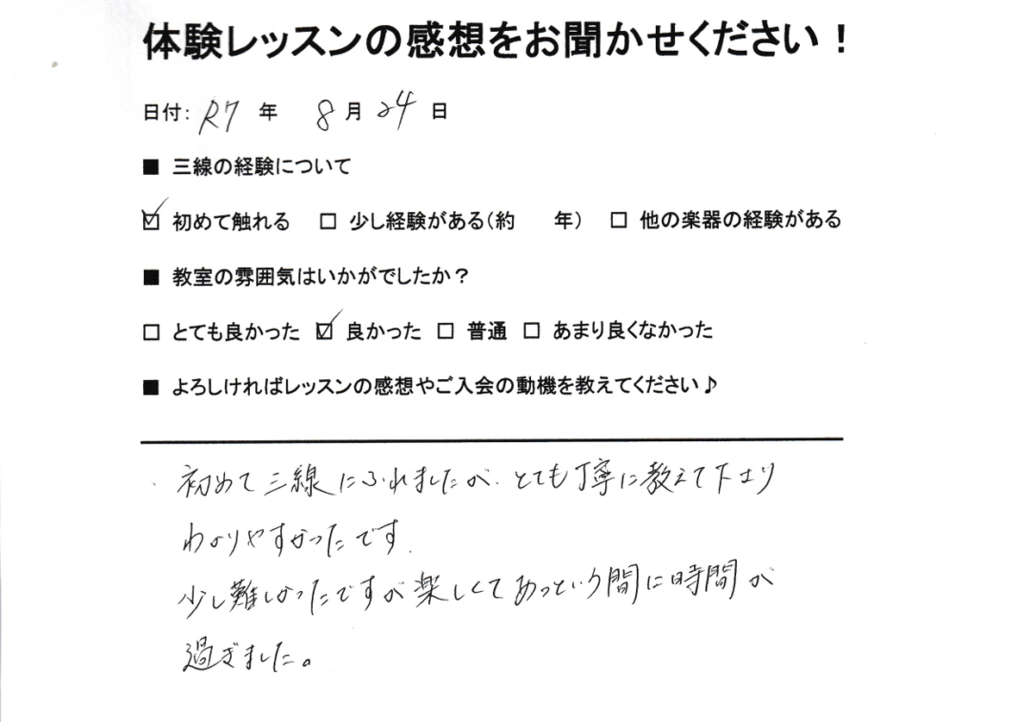 体験レッスンの感想をお聞かせください！
日付： R7 年 8 月 24 日
■ 三線の経験について
☑ 初めて触れる □ 少し経験がある（約 年） □ 他の楽器の経験がある
■ 教室の雰囲気はいかがでしたか？
□ とても良かった ☑ 良かった □ 普通 □ あまり良くなかった
■ よろしければレッスンの感想やご入会の動機を教えてください♪
初めて三線にふれましたが、とても丁寧に教えて下さり
わかりやすかったです。
少し難しかったですが楽しくてあっという間に時間が
過ぎました。